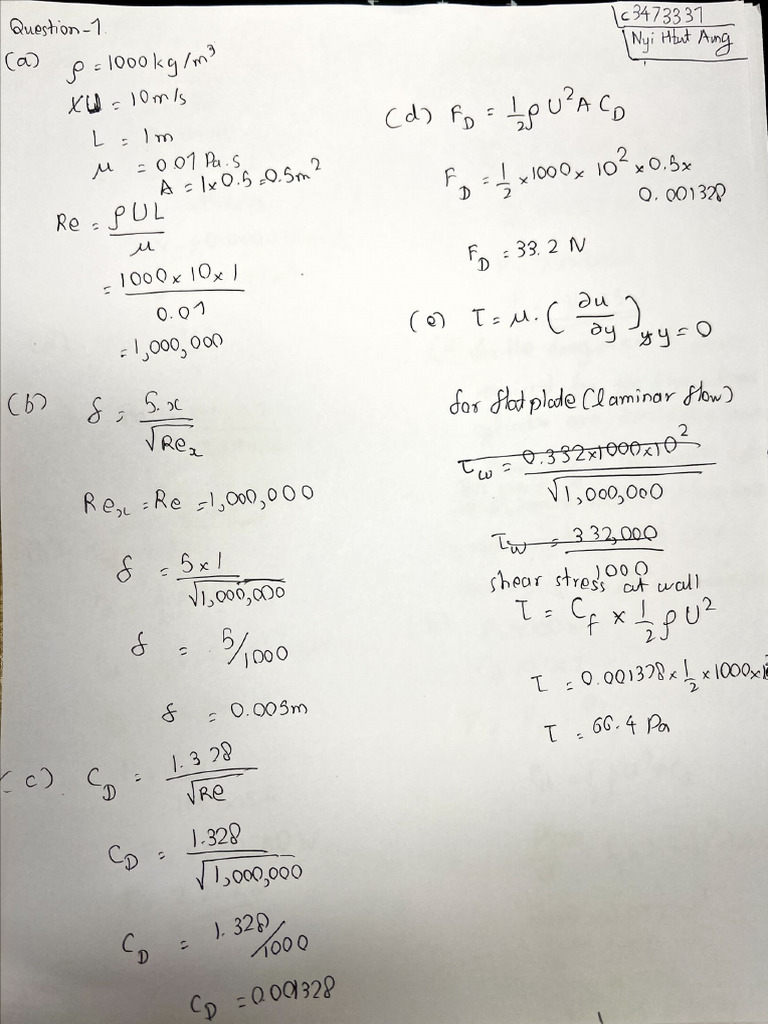 Question-1
c3473337
Nyi Htut Aung
(a) ρ = 1000 kg/m³
U = 10 m/s
L = 1m
μ = 0.01 Pa.s
A = 1 x 0.5 = 0.5 m²
Re = ρUL / μ
= 1000 x 10 x 1 / 0.01
= 1,000,000
(b) δ = 5.x / √Reₓ
Reₓ = Re = 1,000,000
δ = 5 x 1 / √1,000,000
δ = 5/1000
δ = 0.005m
(c) C_D = 1.328 / √Re
C_D = 1.328 / √1,000,000
C_D = 1.328/1000
C_D = 0.001328
(d) F_D = 1/2 ρ U² A C_D
F_D = 1/2 x 1000 x 10² x 0.5 x
0.001328
F_D = 33.2 N
(e) τ = μ. (∂u / ∂y) y = 0
for flat plate (laminar flow)
τ_w = 0.332 x 1000 x 10² / √1,000,000
τ_w = 332,000 / 1000
shear stress at wall
τ = C_f x 1/2 ρ U²
τ = 0.001328 x 1/2 x 1000 x 10²
τ = 66.4 Pa